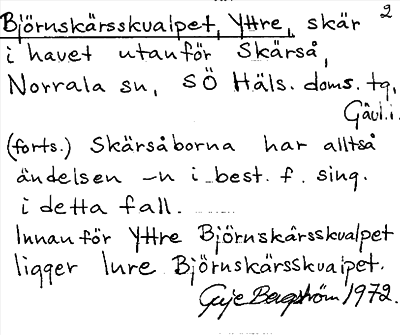 Björnskärsskvalpet, Yttre, skär 2
i havet utanför Skärså,
Norrala sn, SÖ Häls. doms. tg,
Gävl.i.
(forts.) Skärsåborna har alltså
ändelsen -n i best. f. sing.
i detta fall.
Innanför Yttre Björnskärsskvalpet
ligger Inre Björnskärsskvalpet.
Bergström 1972.